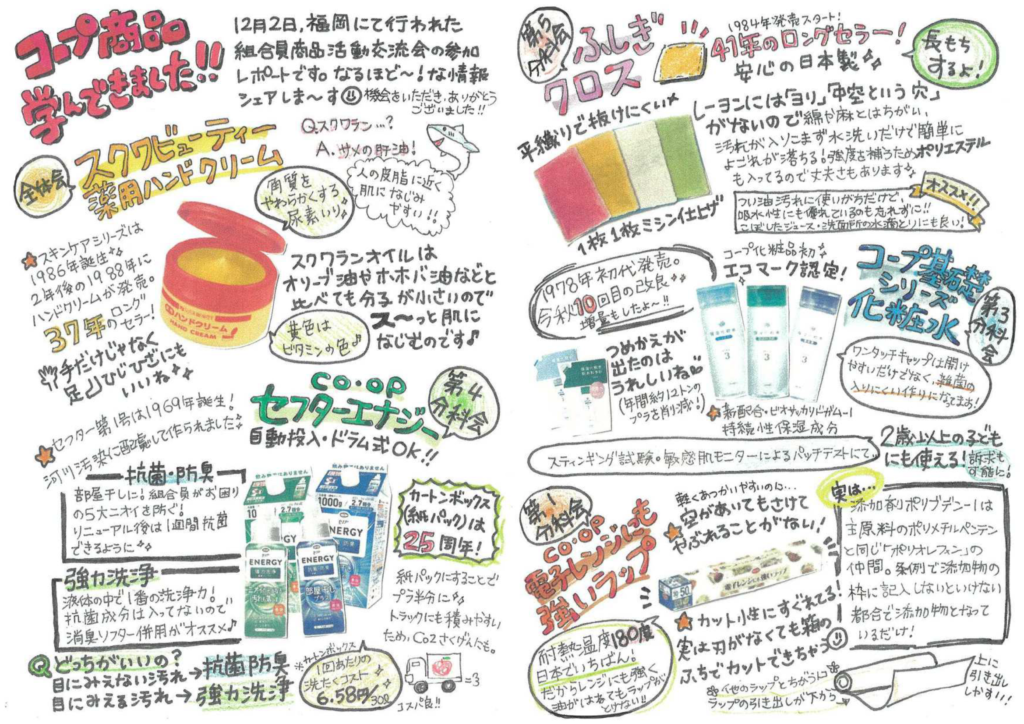 コープ商品
学んできました!!
12月2日,福岡にて行われた
組合員商品活動交流会の参加
レポートです。なるほど〜!な情報
シェアしま〜す
機会をいただき,ありがとう
ございました!!
全体会
スクワビューティー
薬用ハンドクリーム
Q.スクワラン…?
A.サメの肝油!
人の皮脂に近く
肌になじみ
やすい!!
角質を
やわらかくする
尿素いり
★スキンケアシリーズは
1986年誕生
2年後の1988年に
ハンドクリームが発売。
37年のロング
セラー!
手だけじゃなく
足ひじひざにも
いいね
ハンドクリーム
HAND CREAM
スクワランオイルは
オリーブ油やホホバ油などと
比べても分子が小さいので
ス〜っと肌に
なじむのです♪
黄色は
ビタミンの色♪
第4
分科会
CO・OP
セフターエナジー
自動投入・ドラム式OK!!
★セフター第1号は1969年誕生!
河川汚染に配慮して作られました
抗菌・防臭
部屋干しに!組合員がお困り
の5大ニオイを防ぐ!
リニューアル後は1週間抗菌
できるように
強力洗浄
液体の中で1番の洗浄力!
抗菌成分は入ってないので
消臭ソフター併用がオススメ♪
ENERGY
ENERGY
ENERGY
1000g
2.7倍
カートンボックス
(紙パック)は
25周年!
紙パックにすることで
プラ半分に
トラックにも積みやすい
ため,CO2さくげんにも。
Q どっちがいいの?
目にみえない汚れ→抗菌防臭
目にみえる汚れ→強力洗浄
*カートンボックス
1回あたりの
洗たくコスト
6.58円/30ℓ
コスパ良!!
第5
分科会
ふしぎ
クロス
1984年発売スタート!
41年のロングセラー!
安心の日本製
長もち
するよ!
平織りで抜けにくい
1枚1枚ミシン仕上げ
レーヨンには「ヨリ」「中空という穴」
がないので綿や麻とはちがい,
汚れが入りこまず水洗いだけで簡単に
よごれが落ちる!強度を補うためポリエステル
も入ってるので丈夫さもあります
オススメ!!
つい油汚れに使いがちだけど,
吸水性にも優れているのも忘れずに!!
こぼしたジュース・洗面所の水滴とりにも良い!
1978年初代発売。
今秋10回目の改良
増量もしたよ〜!!
コープ化粧品初
エコマーク認定!
コープ基礎
シリーズ
化粧水
第3
分科会
つめかえが
出たのは
うれしいね
(年間約1.2トンの
プラを削減!)
3
3
3
ワンタッチキャップは開け
やすいだけでなく,雑菌の
入りにくい作りになってます!
★新配合・ビオサッカリドガム-1
持続性保湿成分
スティンギング試験。敏感肌モニターによるパッチテストにて
2歳以上の子ども
にも使える!訴求も
可能に!
第1
分科会
CO・OP
電子レンジにも
強いラップ
軽くあつかいやすいのに…
★穴があいてもさけて
やぶれることがない!
電子レンジにも強いラップ
50
★カット性にすぐれてる!
実は刃がなくても箱の
ふちでカットできちゃう
他のラップとちがうよ
ラップの引き出しが下から
上に
引き出し
しがす!!!
耐熱温度180度
日本でいちばん!
だからレンジにも強く
油がはねてもラップが
とけない!!
実は…
添加剤ポリブデン-1は
主原料のポリメチルペンテン
と同じ「ポリオレフィン」の
仲間。条例で添加物の
枠に記入しないといけない
都合で添加物となって
いるだけ!